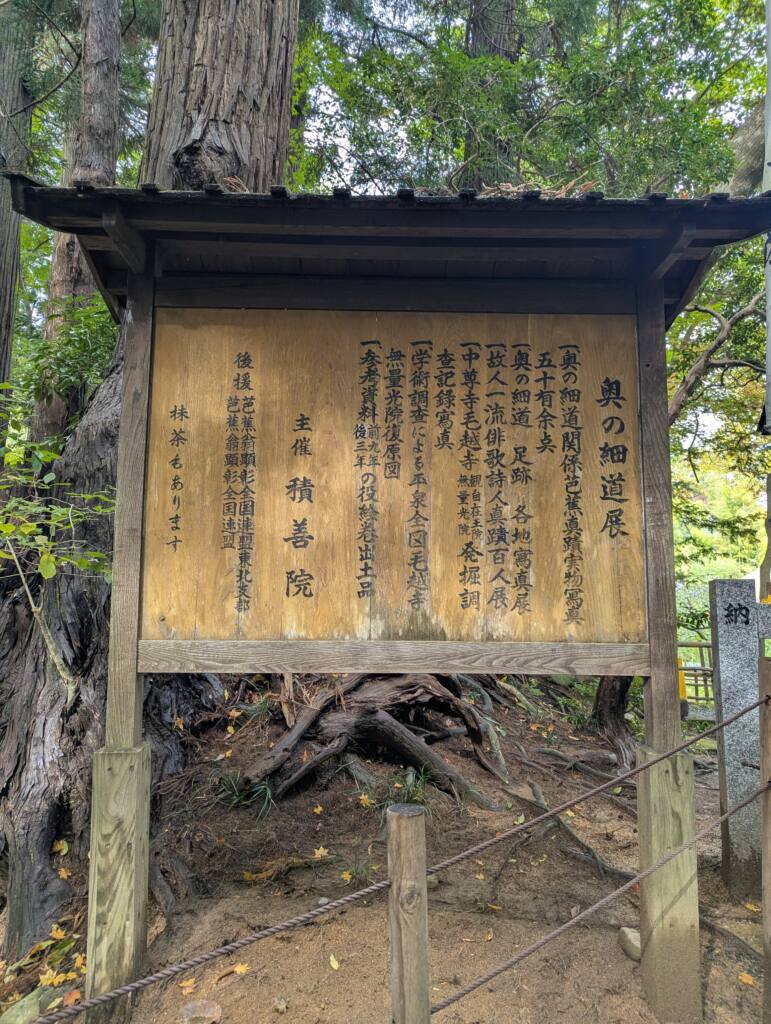 奥の細道展
一、奥の細道関係芭蕉真蹟実物寫真
五十有余点
一、奥の細道 足跡 各地寫真展
一、故人一流俳歌詩人真蹟百人展
一、中尊寺毛越寺 観自在王院 無量光院 発掘調
査記録寫真
一、学術調査による平泉全図毛越寺
無量光院復原図
一、参考資料 前九年 後三年 の役絵巻出土品
主催 積善院
後援 芭蕉翁顕彰全国連盟東北支部
芭蕉翁顕彰全国連盟
抹茶もあります
納